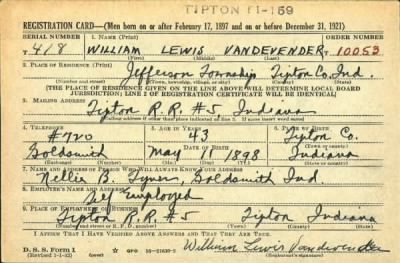 TIPTON 11-159
REGISTRATION CARD—(Men born on or after February 17, 1897 and on or before December 31, 1921)
SERIAL NUMBER 1. NAME (Print) ORDER NUMBER
T 418 WILLIAM LEWIS VANDEVENDER T 10053
(First) (Middle) (Last)
2. PLACE OF RESIDENCE (Print)
Jefferson Township Tipton Co. Ind.
(Number and street) (Town, township, village, or city) (County) (State)
[THE PLACE OF RESIDENCE GIVEN ON THE LINE ABOVE WILL DETERMINE LOCAL BOARD
JURISDICTION; LINE 2 OF REGISTRATION CERTIFICATE WILL BE IDENTICAL]
3. MAILING ADDRESS
Tipton R.R. #5 Indiana
[Mailing address if other than place indicated on line 2. If same insert word same]
4. TELEPHONE 5. AGE IN YEARS 6. PLACE OF BIRTH
43 Tipton Co.
DATE OF BIRTH (Town or county)
Goldsmith May 1898 Indiana
(Exchange) (Number) (Mo.) (Day) (Yr.) (State or country)
7. NAME AND ADDRESS OF PERSON WHO WILL ALWAYS KNOW YOUR ADDRESS
Nellie B. Goldsmith Ind
8. EMPLOYER'S NAME AND ADDRESS
Self Employed
9. PLACE OF EMPLOYMENT OR BUSINESS
Tipton R.R. #5 Tipton Indiana
(Number and street or R. F. D. number) (Town) (County) (State)
I AFFIRM THAT I HAVE VERIFIED ABOVE ANSWERS AND THAT THEY ARE TRUE.
D. S. S. Form 1
(Revised 1-1-42) (over) GPO 16—21630-2 William Lewis Vandevender
(Registrant's signature)